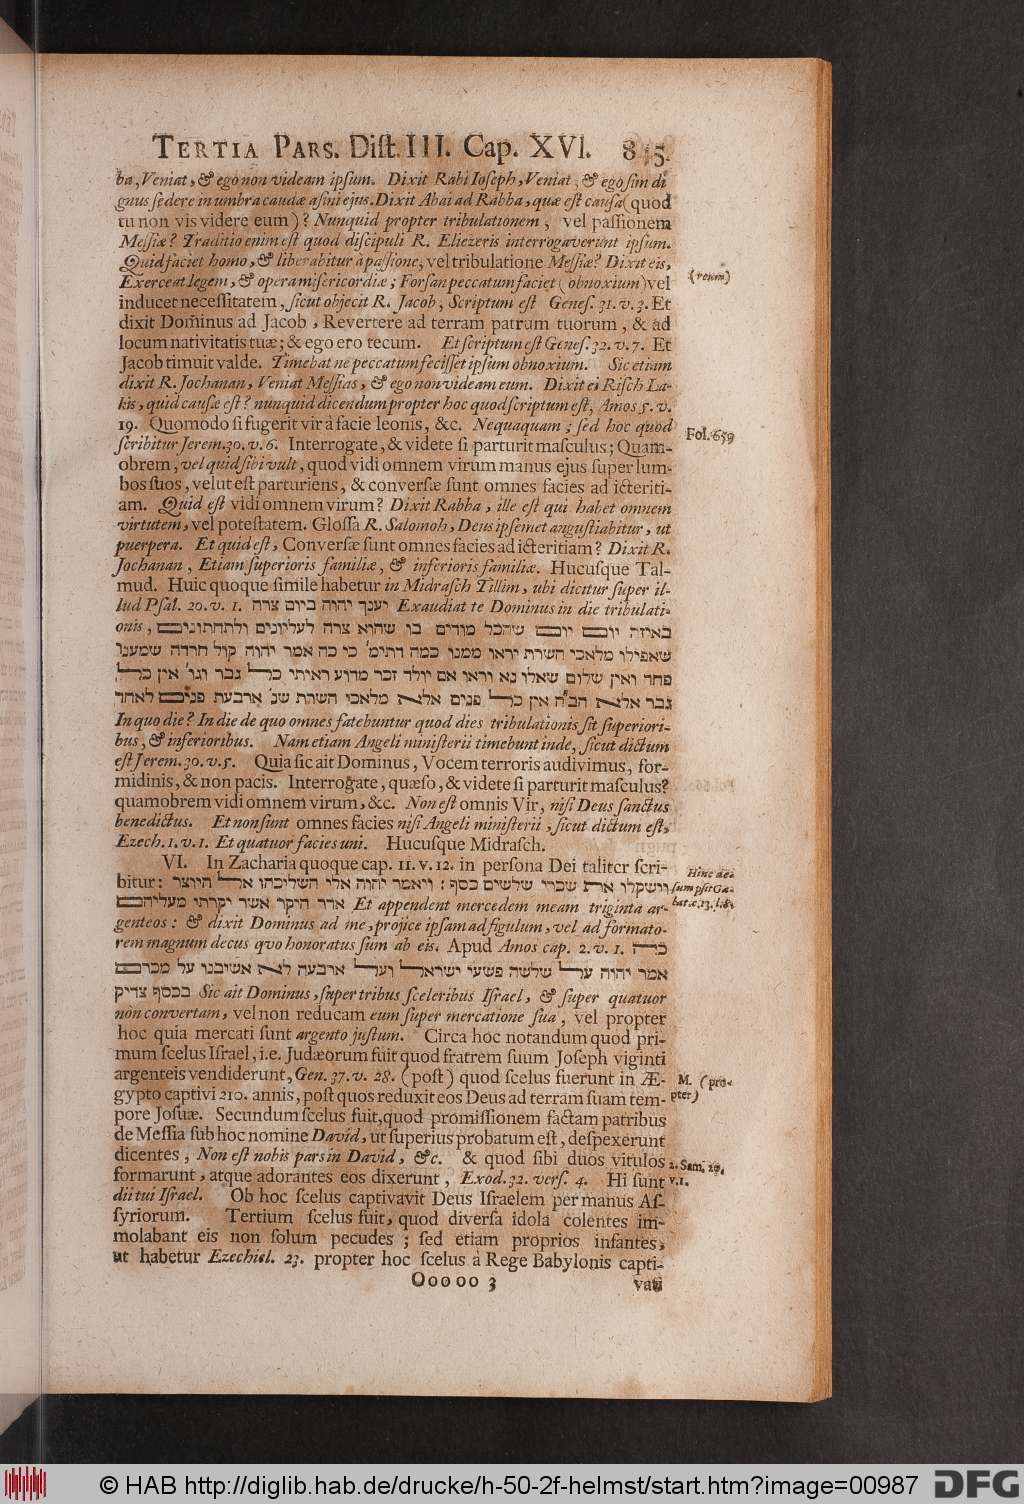 TERTIA PARS. Dist. III. Cap. XVI. 845.
ba, Veniat, & ego non videam ipsum. Dixit Rabi Ioseph, Veniat, & ego sim di
gnus sedere in umbra caudæ asini ejus. Dixit Abai ad Rabba, quæ est causa (quod
tu non vis videre eum)? Nunquid propter tribulationem, vel passionem
Messiæ? Traditio enim est quod discipuli R. Eliezeris interrogaverunt ipsum.
Quid faciet homo, & liberabitur à passione, vel tribulatione Messiæ? Dixit eis,
Exerceat legem, & opera misericordiæ; Forsan peccatum faciet (obnoxium) vel
(reum)
inducet necessitatem, sicut objecit R. Jacob, Scriptum est Genes. 31. v. 3. Et
dixit Dominus ad Jacob, Revertere ad terram patrum tuorum, & ad
locum nativitatis tuæ; & ego ero tecum. Et scriptum est Genes. 32. v. 7. Et
Jacob timuit valde. Timebat ne peccatum fecisset ipsum obnoxium. Sic etiam
dixit R. Jochanan, Veniat Messias, & ego non videam eum. Dixit ei Risch La-
kis, quid causæ est? nunquid dicendum propter hoc quod scriptum est, Amos 5. v.
19. Quomodo si fugerit vir à facie leonis, &c. Nequaquam; sed hoc quod
Fol. 659
scribitur Jerem. 30. v. 6. Interrogate, & videte si parturit masculus; Quam-
obrem, vel quid sibi vult, quod vidi omnem virum manus ejus super lum-
bos suos, velut est parturiens, & conversæ sunt omnes facies ad icteriti-
am. Quid est vidi omnem virum? Dixit Rabba, ille est qui habet omnem
virtutem, vel potestatem. Glossa R. Salomoh, Deus ipsemet angustiabitur, ut
puerpera. Et quid est, Conversæ sunt omnes facies ad icteritiam? Dixit R.
Jochanan, Etiam superioris familiæ, & inferioris familiæ. Hucusque Tal-
mud. Huic quoque simile habetur in Midrasch Tillim, ubi dicitur super il-
lud Psal. 20. v. 1. יענך יהוה ביום צרה Exaudiat te Dominus in die tribulati-
onis, באיזה יום יום שהכל מודים בו שהוא צרה לעליונים ולתחתונים
שאפילו מלאכי השרת יראו ממנו כמה דתימ' כי כה אמר יהוה קול חרדה שמענו
פחד ואין שלום שאלו נא וראו אם יולד זכר מדוע ראיתי כל גבר וגו' אין כל
גבר אלא הב"ה אין כל פנים אלא מלאכי השרת שנ' ארבעת פנים לאחד
In quo die? In die de quo omnes fatebuntur quod dies tribulationis sit superiori-
bus, & inferioribus. Nam etiam Angeli ministerii timebunt inde, sicut dictum
est Jerem. 30. v. 5. Quia sic ait Dominus, Vocem terroris audivimus, for-
midinis, & non pacis. Interrogate, quæso, & videte si parturit masculus?
quamobrem vidi omnem virum, &c. Non est omnis Vir, nisi Deus sanctus
benedictus. Et non sunt omnes facies nisi Angeli ministerii, sicut dictum est,
Ezech. 1. v. 1. Et quatuor facies uni. Hucusque Midrasch.
VI. In Zacharia quoque cap. 11. v. 12. in persona Dei taliter scri-
Hinc de-
bitur: וישקלו את שכרי שלשים כסף: ויאמר יהוה אלי השליכהו אל היוצר
sumpsit Ga-
אדר היקר אשר יקרתי מעליהם Et appendent mercedem meam triginta ar-
genteos: & dixit Dominus ad me, projice ipsam ad figulum, vel ad formato-
rem magnum decus quo honoratus sum ab eis. Apud Amos cap. 2. v. 1. כה
אמר יהוה על שלשה פשעי ישראל ועל ארבעה לא אשיבנו על מכרם
בכסף צדיק Sic ait Dominus, super tribus sceleribus Israel, & super quatuor
non convertam, vel non reducam eum super mercatione sua, vel propter
hoc quia mercati sunt argento justum. Circa hoc notandum quod pri-
mum scelus Israel, i.e. Judæorum fuit quod fratrem suum Joseph viginti
argenteis vendiderunt, Gen. 37. v. 28. (post) quod scelus fuerunt in Æ-
M. (pro-
gypto captivi 210. annis, post quos reduxit eos Deus ad terram suam tem-
pter)
pore Josuæ. Secundum scelus fuit, quod promissionem factam patribus
de Messia sub hoc nomine David, ut superius probatum est, despexerunt
dicentes, Non est nobis pars in David, &c. & quod sibi duos vitulos
2. Sam. 20.
formarunt, atque adorantes eos dixerunt, Exod. 32. vers. 4. Hi sunt
v. 1.
dii tui Israel. Ob hoc scelus captivavit Deus Israelem per manus As-
syriorum. Tertium scelus fuit, quod diversa idola colentes im-
molabant eis non solum pecudes; sed etiam proprios infantes,
ut habetur Ezechiel. 23. propter hoc scelus à Rege Babylonis capti-
Ooooo 3
vati
© HAB http://diglib.hab.de/drucke/h-50-2f-helmst/start.htm?image=00987
DFG